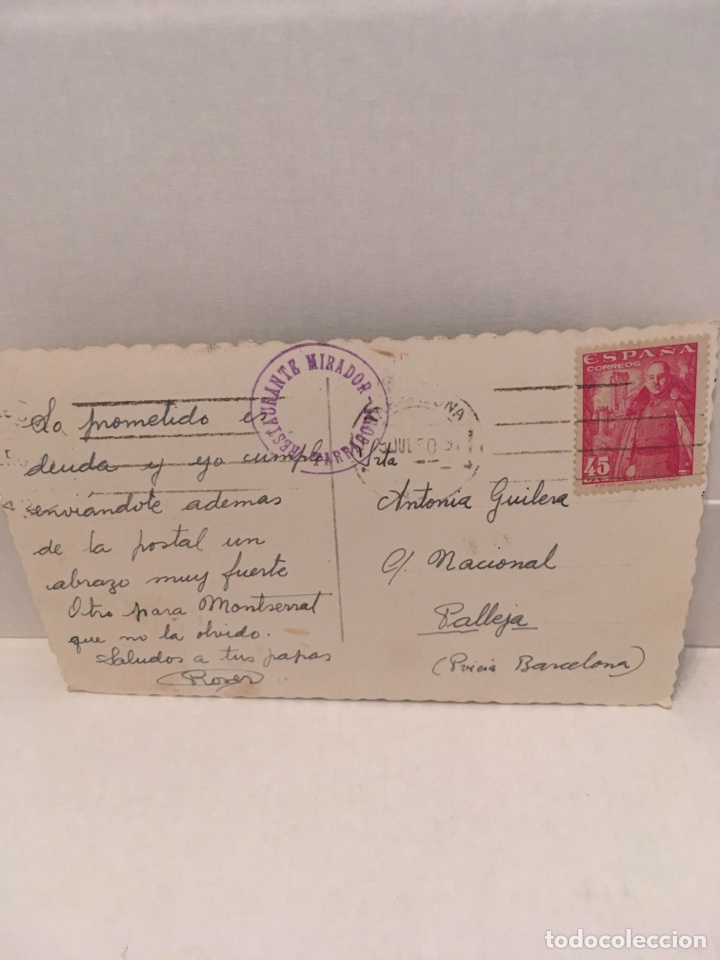 Lo prometido es
deuda y yo cumplo
enviándote ademas
de la postal un
abrazo muy fuerte
Otro para Montserrat
que no la olvido.
Saludos a tus papas
Roser
RESTAURANTE MIRADOR - TARRAGONA
JUL 50
ESPAÑA
CORREOS
45
Srta
Antonia Guilera
c/. Nacional
Palleja
(Pvicia Barcelona)
todocoleccion